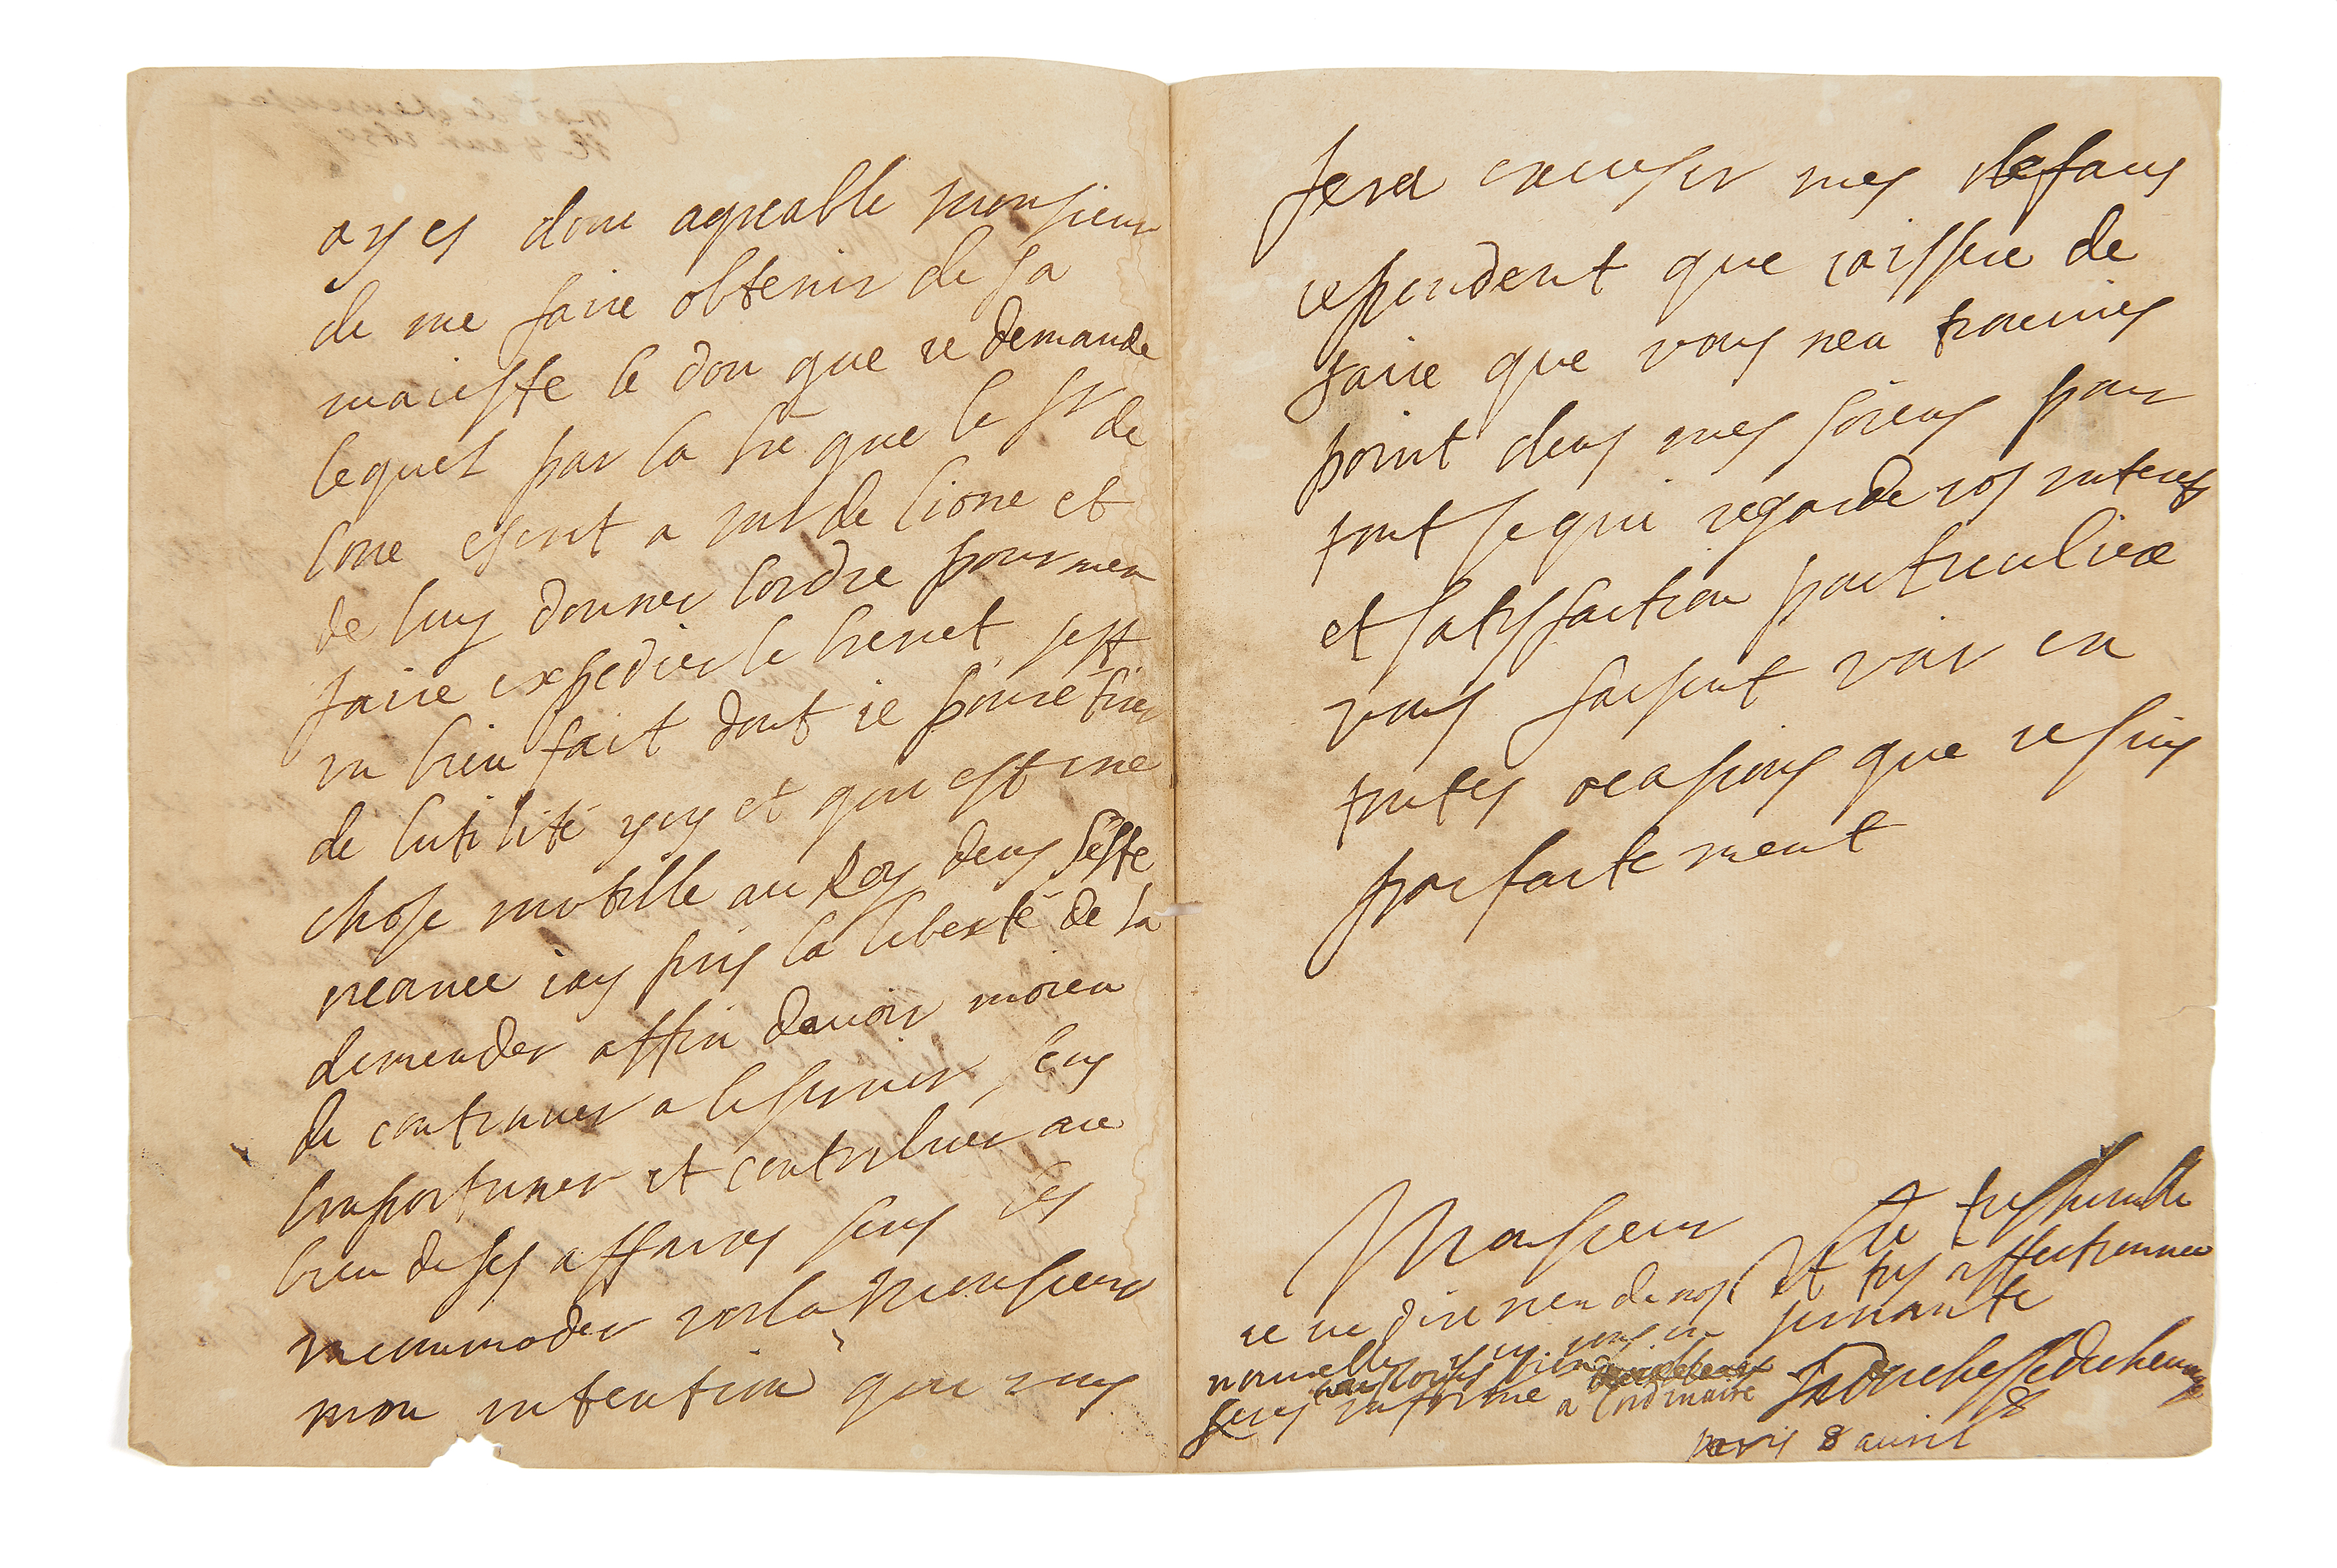 ayes donc agreable monsieur
de me faire obtenir de sa
maieste le don que ie demande
lequel par la lre que le sr de
lone escrit a mr de lione et
de luy donner lordre pour men
faire expedier le brenet sest
un bien fait dont ie pouré tirer
de lutilité ycy et qui est une
chose inutille au Roy dens seste
creance iay pris la liberté de la
demender affin dauoir moien
de continuer a le seruir sens
limportuner et contribuer au
bien de ses affaires sens les
incommoder voila Monsieur
mon intention qui vous
fera excuser mes defaus
cependent que iaissere de
faire que vous nen trouuies
point dens mes soiens pour
tout se qui regarde vos interets
et satisfaction particuliere
vous faisent voir en
toutes ocasions que ie suis
parfaitement
Monsieur
Vtre tres humble
et tres affectionnee
seruante
la duchesse de cheureuse
ie ne dire rien de nos
nouuelles ycy vous en
seres bien informe a lordinaire
paris 8 auril